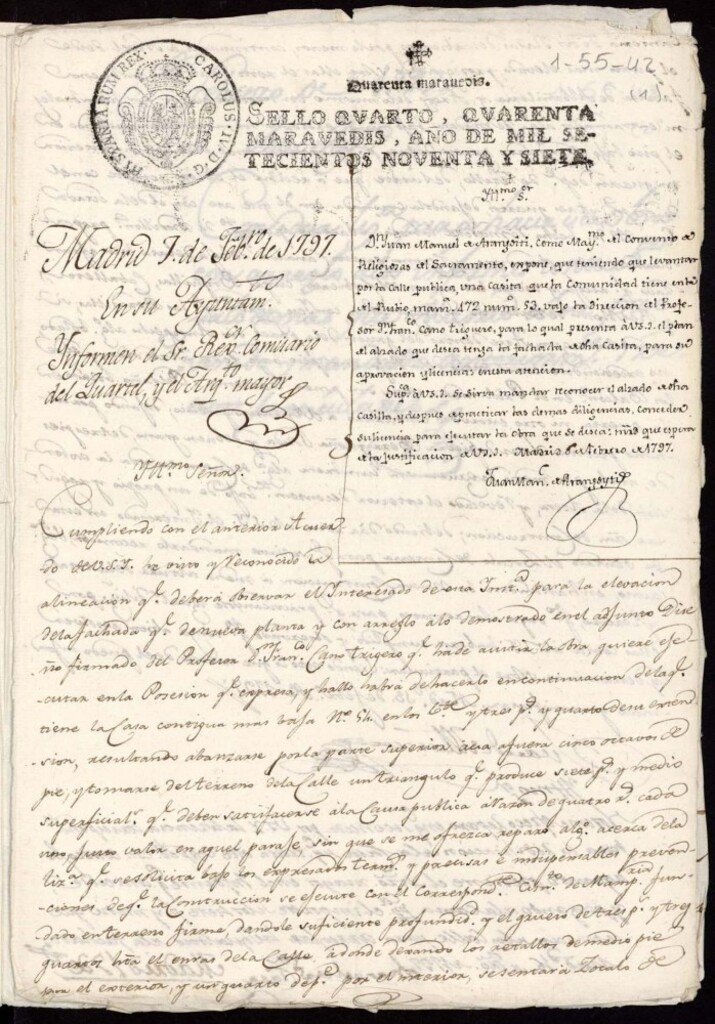 HISPANIARUM REX. CAROLUS. IV. D. G.
1-55-42
(1)
Quarenta maravedis.
SELLO QVARTO, QVARENTA
MARAVEDIS, AÑO DE MIL SE-
TECIENTOS NOVENTA Y SIETE.
Yll.mo S.er
D.n Juan Manuel de Aranzoiti, como May.mo del Convento de
Religiosas del Sacramento, expone, que teniendo que levantar
por la Calle publica, una Casita que la Comunidad tiene en la
del Rubio, manz.a 472 num.o 53. vajo la Direccion del Profe-
sor D.n Fran.co Cano triguero, para lo qual presenta à V.S.I. el plan
del alzado que desea tenga la fachada de dha Casita, para su
aprovacion y licencia: en esta atencion.
Sup.ca à V.S.I. se sirva mandar reconocer el alzado de dha
Casilla, y despues de practicar las demas diligencias, conceder
su licencia para ejecutar la obra que se desea: mrd que espera
de la Justificacion de V.S.I. Madrid 6 de Febrero de 1797.
Juan Man.l de Aranzoyti
Madrid 7. de Feb.ro de 1797.
En su Ayuntam.to
Informen el Sr. Rex.or Comisario
del Quartel, y el Arq.to mayor
Yll.mo Señor.
Cumpliendo con el anterior Acuer-
do de V.S.I. he visto y reconocido la
alineacion q.e deberá observar el Interesado de esta Inst.a para la elevacion
de la fachada q.e de nueva planta y con arreglo á lo demostrado en el adjunto Dise-
ño firmado del Profesor D.n Fran.co Cano trigero q.e ha de asistir la obra, quiere eje-
cutar en la Posesion q.e expresa, y hallo habrá de hacerlo en continuacion de la q.e
tiene la Casa contigua mas baja N.o 54. en los y tres p.s y quarto de su exten-
sion, resultando abanzarse por la parte superior acia afuera cinco octavos de
pie, y tomarse del terreno de la Calle un triangulo q.e produce siete p.s y medio
superficial.s q.e deben satisfacerse á la Causa publica á razon de quatro r.s cada
uno, justo valor en aquel parage, sin que se me ofrezca reparo alg.o acerca de la
liz.a q.e se solicita bajo los expresados term.s y precisas é indispensables preven-
ciones de q.e la Construccion se ejecute con el correspond.te Cim.to de Mamp.ria fun-
dado en terreno firme, dandole suficiente profundid.d y el grueso de tres p.s y tres
quartos hta el enras de la Calle, adonde dexando los retallos de medio pie
para el exterior, y un quarto de p.e por el interior, se sentará Zocalo de